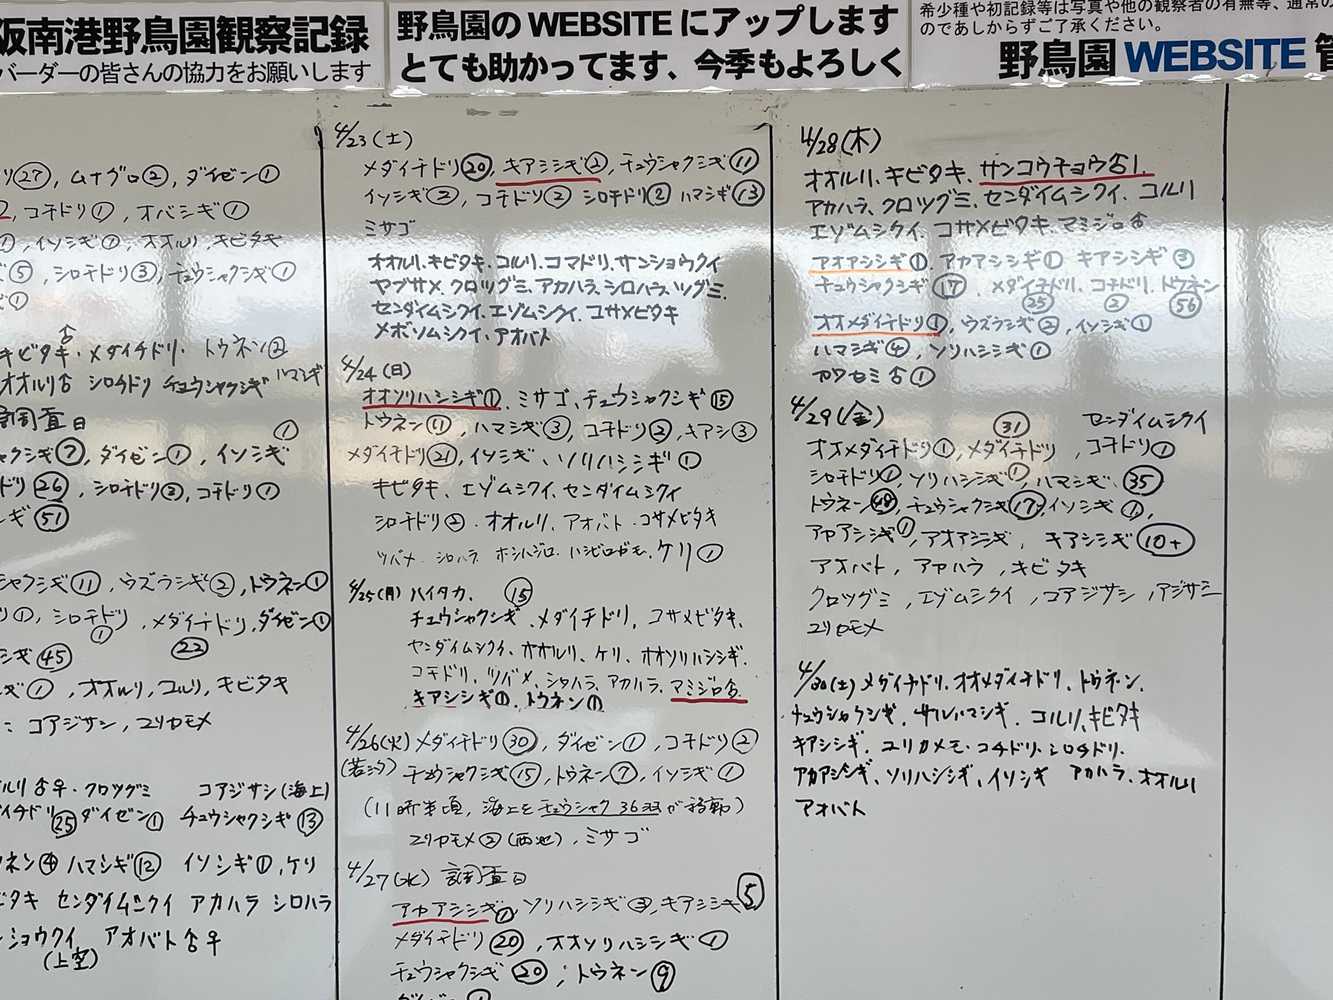 阪南港野鳥園観察記録
バーダーの皆さんの協力をお願いします
野鳥園の WEBSITE にアップします
とても助かってます、今季もよろしく
希少種や初記録等は写真や他の観察者の有無等、通常の
のであしからずご了承ください。
野鳥園 WEBSITE 管
リ㉗, ムナグロ②, ダイゼン①
コチドリ①, オバシギ①
①, イソシギ①, オオルリ, キビタキ
⑤, シロチドリ③, チュウシャクシギ①
①
キビタキ♂・メダイチドリ・トウネン②
オオルリ♂ シロチドリ チュウシャクシギ ハマシギ①
調査日
ャクシギ⑦, ダイゼン①, イソシギ
ドリ㉖, シロチドリ③, コチドリ①
シギ㊿+1
シャクシギ⑪, ウズラシギ②, トウネン①
リ①, シロチドリ①, メダイチドリ㉒, ダイゼン①
シギ㊺
シギ①, オオルリ, コルリ, キビタキ
: コアジサシ, ユリカモメ
オルリ♂♀・クロツグミ コアジサシ(海上)
イチドリ㉕ ダイゼン① チュウシャクシギ⑬
ウネン④ ハマシギ⑫ イソシギ①, ケリ
ビタキ センダイムシクイ アカハラ シロハラ
ショウクイ アオバト♂♀
(上空)
4/23(土)
メダイチドリ⑳, キアシシギ②, チュウシャクシギ⑪
イソシギ②, コチドリ② シロチドリ② ハマシギ⑬
ミサゴ
オオルリ、キビタキ、コルリ、コマドリ、サンショウクイ
ヤブサメ、クロツグミ、アカハラ、シロハラ、ツグミ、
センダイムシクイ、エゾムシクイ、コサメビタキ
メボソムシクイ、アオバト
4/24(日)
オオソリハシシギ①、ミサゴ、チュウシャクシギ⑮
トウネン⑪, ハマシギ③, コチドリ②, キアシ③
メダイチドリ㉑, イソシギ、ソリハシシギ①
キビタキ、エゾムシクイ、センダイムシクイ
シロチドリ②・オオルリ、アオバト・コサメビタキ
ツバメ・シロハラ・ホシハジロ・ハシビロガモ、ケリ①
4/25(月) ハイタカ、
チュウシャクシギ⑮、メダイチドリ, コサメビタキ、
センダイムシクイ、オオルリ、ケリ、オオソリハシシギ、
コチドリ、ツバメ、シロハラ、アカハラ、マミジロ♂、
キアシシギ①、トウネン①
4/26(火) メダイチドリ㉚, ダイゼン①, コチドリ②
(若汐) チュウシャクシギ⑮, トウネン⑦, イソシギ①
(11時半頃, 海上をチュウシャク36羽が移動)
ユリカモメ②(西池), ミサゴ
4/27(水) 調査日
アカアシシギ①, ソリハシシギ③, キアシシギ⑤
メダイチドリ⑳, オオソリハシシギ①
チュウシャクシギ⑳, トウネン⑨
ダイゼン①
4/28(木)
オオルリ、キビタキ、サンコウチョウ♂1、
アカハラ、クロツグミ、センダイムシクイ、コルリ
エゾムシクイ、コサメビタキ、マミジロ♂
アオアシシギ①、アカアシシギ① キアシシギ③
チュウシャクシギ⑰、メダイチドリ㉕、コチドリ②、トウネン(56)
オオメダイチドリ①, ウズラシギ②, イソシギ①
ハマシギ④, ソリハシシギ①
カワセミ♂①
4/29(金) センダイムシクイ
オオメダイチドリ①, メダイチドリ㉛, コチドリ①
シロチドリ①, ソリハシシギ①, ハマシギ㉟
トウネン㊽, チュウシャクシギ⑰, イソシギ①,
アカアシシギ①, アオアシシギ, キアシシギ(10+)
アオバト, アカハラ, キビタキ
クロツグミ, エゾムシクイ, コアジサシ, アジサシ
ユリカモメ
4/30(土) メダイチドリ、オオメダイチドリ、トウネン、
チュウシャクシギ、サルハマシギ、コルリ、キビタキ
キアシシギ、ユリカモメ・コチドリ・シロチドリ・
アカアシシギ、ソリハシシギ、イソシギ アカハラ、オオルリ
アオバト